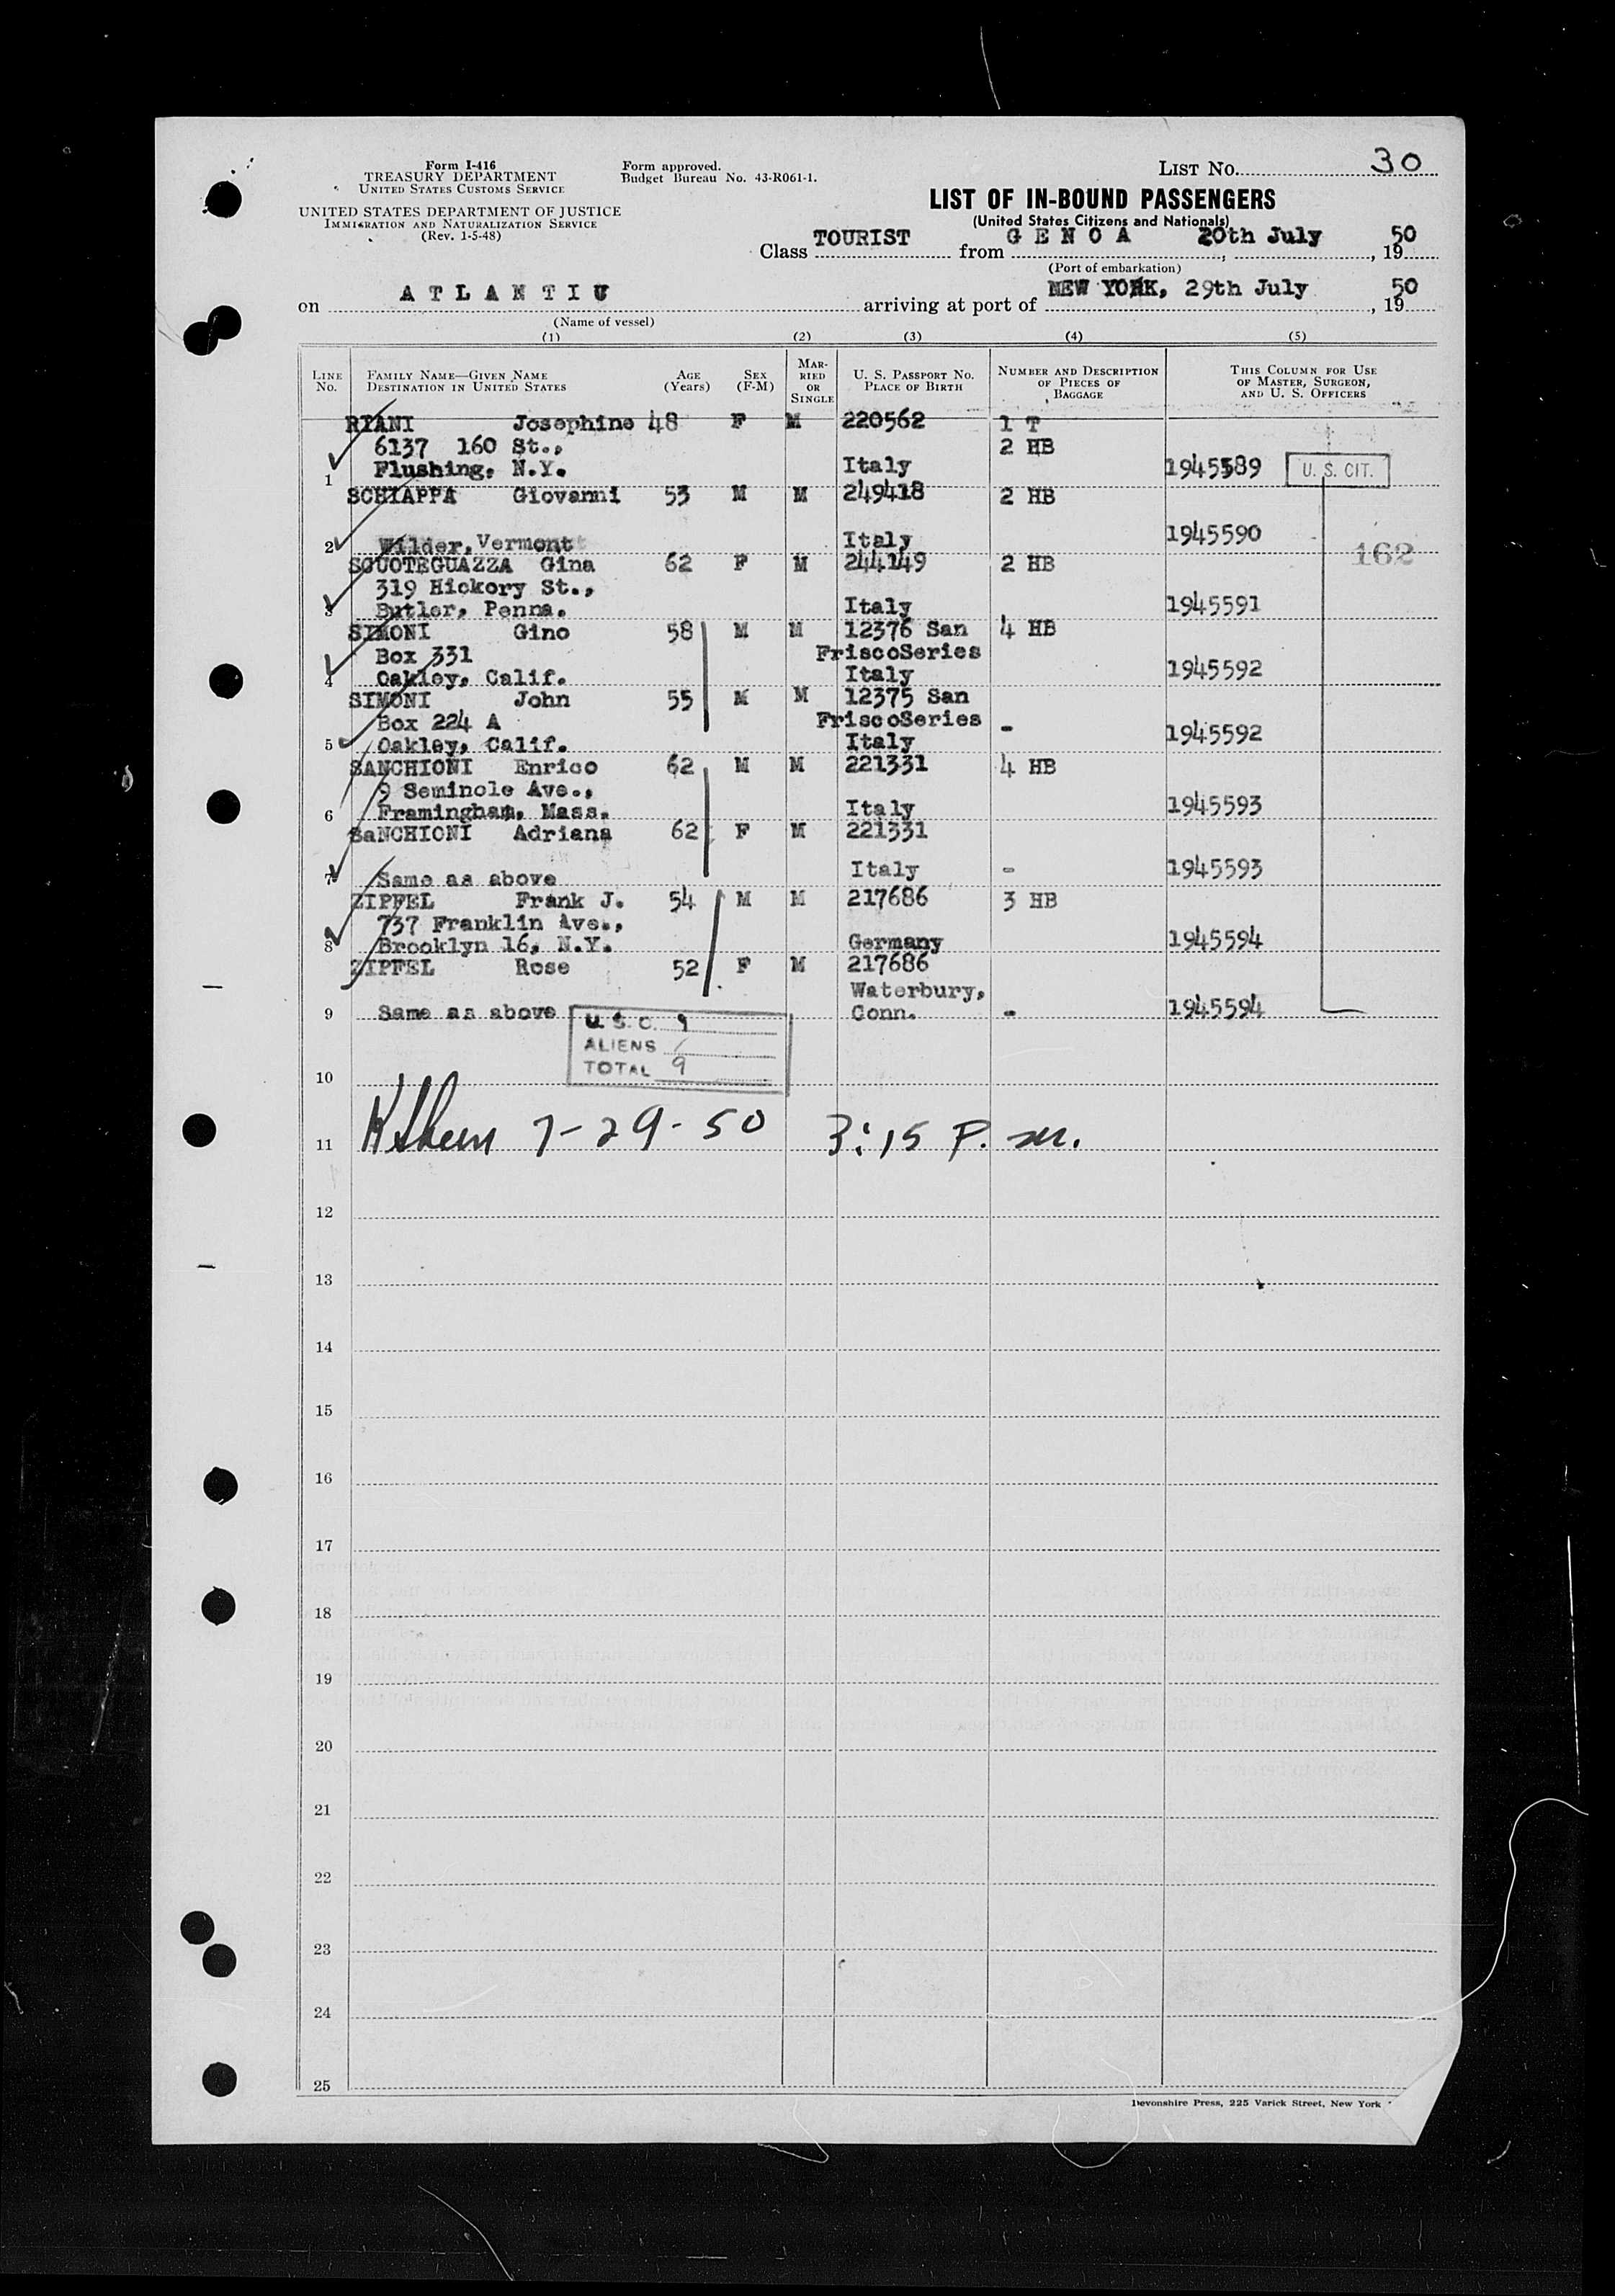 Form I-416
TREASURY DEPARTMENT
UNITED STATES CUSTOMS SERVICE
UNITED STATES DEPARTMENT OF JUSTICE
IMMIGRATION AND NATURALIZATION SERVICE
(Rev. 1-5-48)
Form approved.
Budget Bureau No. 43-R061-1.
LIST No. 30
LIST OF IN-BOUND PASSENGERS
(United States Citizens and Nationals)
Class TOURIST from G E N O A, 20th July, 1950
(Port of embarkation)
on A T L A N T I C arriving at port of NEW YORK, 29th July, 1950
(Name of vessel)
(1) (2) (3) (4) (5)
LINE No. FAMILY NAME—GIVEN NAME DESTINATION IN UNITED STATES AGE (Years) SEX (F-M) MARRIED OR SINGLE U. S. PASSPORT No. PLACE OF BIRTH NUMBER AND DESCRIPTION OF PIECES OF BAGGAGE THIS COLUMN FOR USE OF MASTER, SURGEON, AND U. S. OFFICERS
RIANI Josephine 48 F M 220562 1 T
6137 160 St., 2 HB
1 Flushing, N.Y. Italy 1945589 U. S. CIT.
SCHIAPPA Giovanni 53 M M 249418 2 HB
2 Wilder, Vermont Italy 1945590 162
SGUOTEGUAZZA Gina 62 F M 244149 2 HB
319 Hickory St.,
3 Butler, Penna. Italy 1945591
SIMONI Gino 58 M M 12376 San 4 HB
Box 331 FriscoSeries
4 Oakley, Calif. Italy 1945592
SIMONI John 55 M M 12375 San
Box 224 A FriscoSeries -
5 Oakley, Calif. Italy 1945592
SANCHIONI Enrico 62 M M 221331 4 HB
9 Seminole Ave.,
6 Framingham, Mass. Italy 1945593
SaNCHIONI Adriana 62 F M 221331
7 Same as above Italy - 1945593
ZIPFEL Frank J. 54 M M 217686 3 HB
737 Franklin Ave.,
8 Brooklyn 16, N.Y. Germany 1945594
ZIPFEL Rose 52 F M 217686
Waterbury,
9 Same as above Conn. - 1945594
U. S. C. 9
ALIENS /
TOTAL 9
10
11 7-29-50 3:15 P. m.
12
13
14
15
16
17
18
19
20
21
22
23
24
25
Devonshire Press, 225 Varick Street, New York